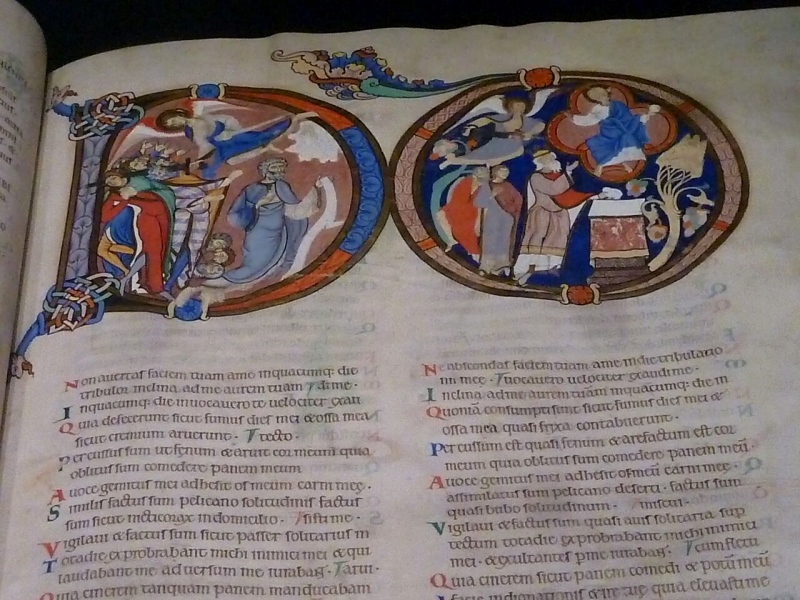 Non avertas faciem tuam a me inquacumq; die
tribulor inclina ad me aurem tuam
Inquacumq; die invocavero te velociter exau
Quia defecerunt sicut fumus dies mei & ossa mea
sicut cremium aruerunt.
Percussus sum ut fenum & aruit cor meum quia
oblitus sum comedere panem meum
A voce gemitus mei adhesit os meum carni mee.
Similis factus sum pelicano solitudinis factus
sum sicut nicticorax in domicilio.
Vigilavi & factus sum sicut passer solitarius in
Tota die exprobrabant michi inimici mei & qui
laudabant me adversum me iurabant.
Quia cinerem tanquam panem manducabam
Ne abscondas faciem tuam a me in die tribulatio
nis mee. velociter exaudi me.
Inclina ad me aurem tuam inquacumq; die in
Quoniã consumpti sunt sicut fumus dies mei &
ossa mea quasi frixa contabuerunt.
Percussum est quasi fenum & arefactum est cor
meum quia oblitus sum comedere panem meũ.
A voce gemitus mei adhesit os meũ carni mee.
assimilatus sum pelicano deserti. factus sum
quasi bubo solitudinum.
Vigilavi & factus sum quasi avis solitaria sup
tectum tota die exprobrabant michi inimici
mei. & exultantes p me iurabant.
Quia cinerem sicut panem comedi & potũ meũ